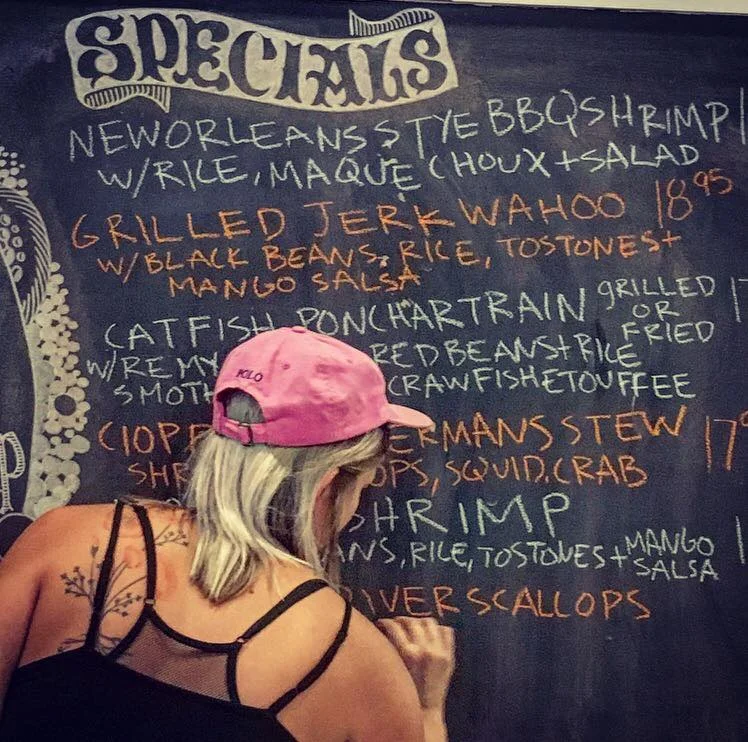 SPECIALS
NEW ORLEANS STYE BBQ SHRIMP
W/RICE, MAQUE CHOUX + SALAD
GRILLED JERK WAHOO 18 95
W/BLACK BEANS, RICE, TOSTONES +
MANGO SALSA
CATFISH PONCHARTRAIN GRILLED OR FRIED
W/REMY RED BEANS + RICE
SMOTH CRAWFISH ETOUFFEE
CIOPP ERMANS STEW 17
SHR OPS, SQUID, CRAB
SHRIMP
ANS, RICE, TOSTONES + MANGO SALSA
IVER SCALLOPS
POLO